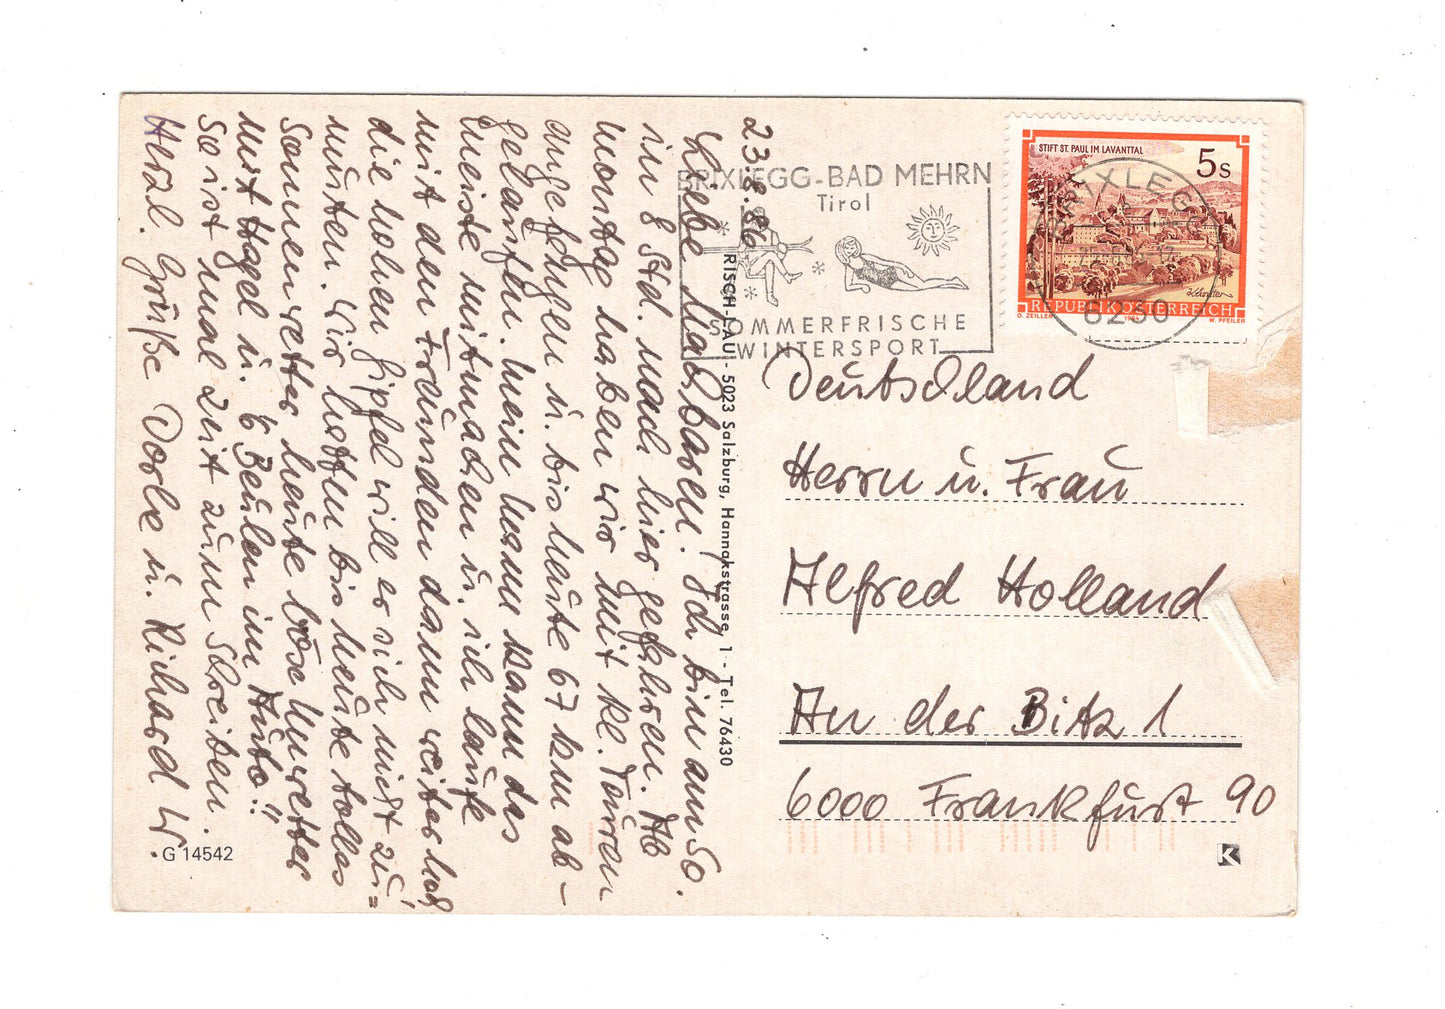 23.8.86
Liebe Nachbarn! Ich bin am So.
in 8 Std. nach hier gefahren. Ab
Montag haben wir mit kl. Touren
angefangen u. bis heute 67 km ab-
gelaufen. Mein Mann kann das
meiste mitmachen u. ich laufe
mit den Freunden dann weiter hoch
die hohen Gipfel will er sich nicht zu=
muten. Wir hatten bis heute tolles
Sommerwetter heute böse Unwetter
mit Hagel u. 6 Beulen im Auto!!
So ist mal Zeit zum Schreiben.
Herzl. Grüße Dorle u. Richard W.
G 14542
RISCH-LAU - 5023 Salzburg, Hannakstrasse 1 - Tel. 76430
BRIXLEGG-BAD MEHRN
Tirol
SOMMERFRISCHE
WINTERSPORT
STIFT ST. PAUL IM LAVANTTAL
5 S
Kärnten
REPUBLIK ÖSTERREICH
O. ZEILLER 1985 W. PFEILER
BRIXLEGG
6230
Deutschland
Herrn u. Frau
Alfred Holland
An der Bitz 1
6000 Frankfurt 90
K